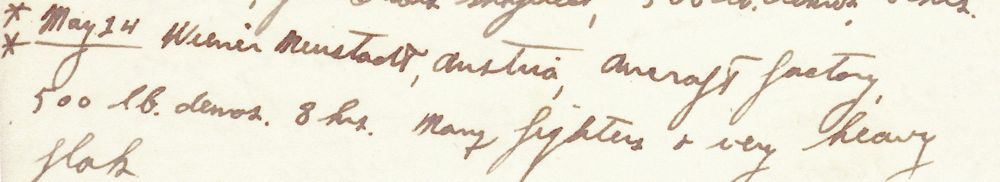 500 lb. demos. 8 hrs.
* May 24 Wiener Neustadt, Austria, Aircraft factory,
* 500 lb. demos. 8 hrs. Many fighters & very heavy
flak